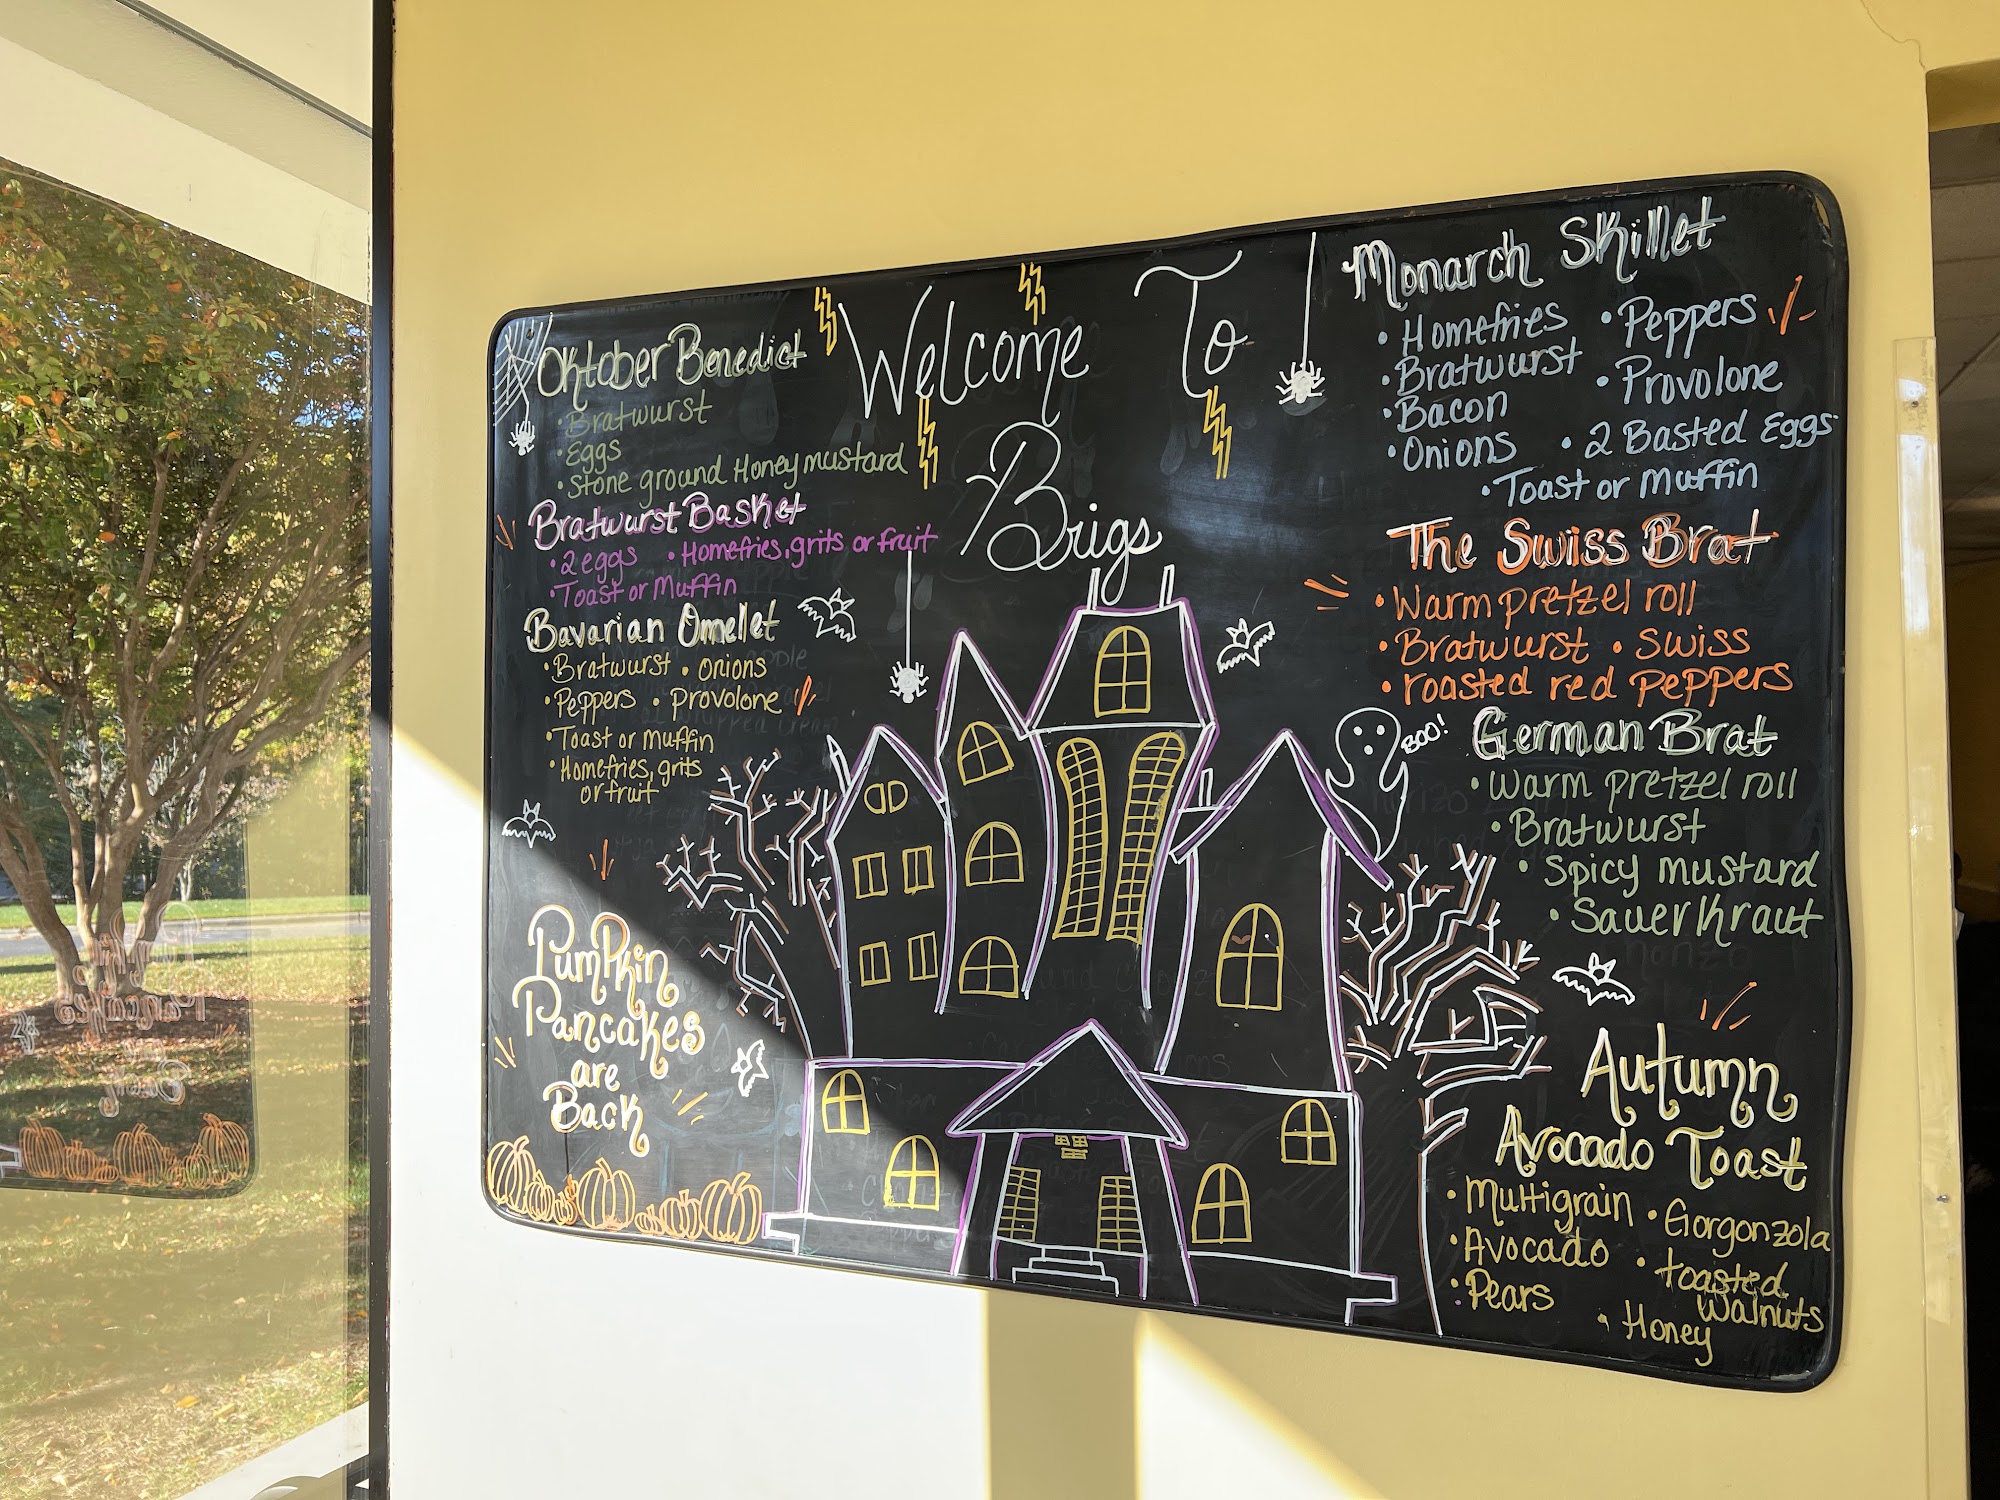 Welcome To
Brigs
Oktober Benedict
• Bratwurst
• Eggs
• Stone ground Honey mustard
Bratwurst Basket
• 2 eggs • Homefries, grits or fruit
• Toast or Muffin
Bavarian Omelet
• Bratwurst • Onions
• Peppers • Provolone
• Toast or Muffin
• Homefries, grits
or fruit
Pumpkin
Pancakes
are
Back
Monarch Skillet
• Homefries • Peppers
• Bratwurst • Provolone
• Bacon
• Onions • 2 Basted Eggs
• Toast or Muffin
The Swiss Brat
• Warm pretzel roll
• Bratwurst • Swiss
• roasted red peppers
BOO!
German Brat
• Warm pretzel roll
• Bratwurst
• Spicy mustard
• Sauerkraut
Autumn
Avocado Toast
• Multigrain • Gorgonzola
• Avocado • toasted
Walnuts
• Pears
• Honey